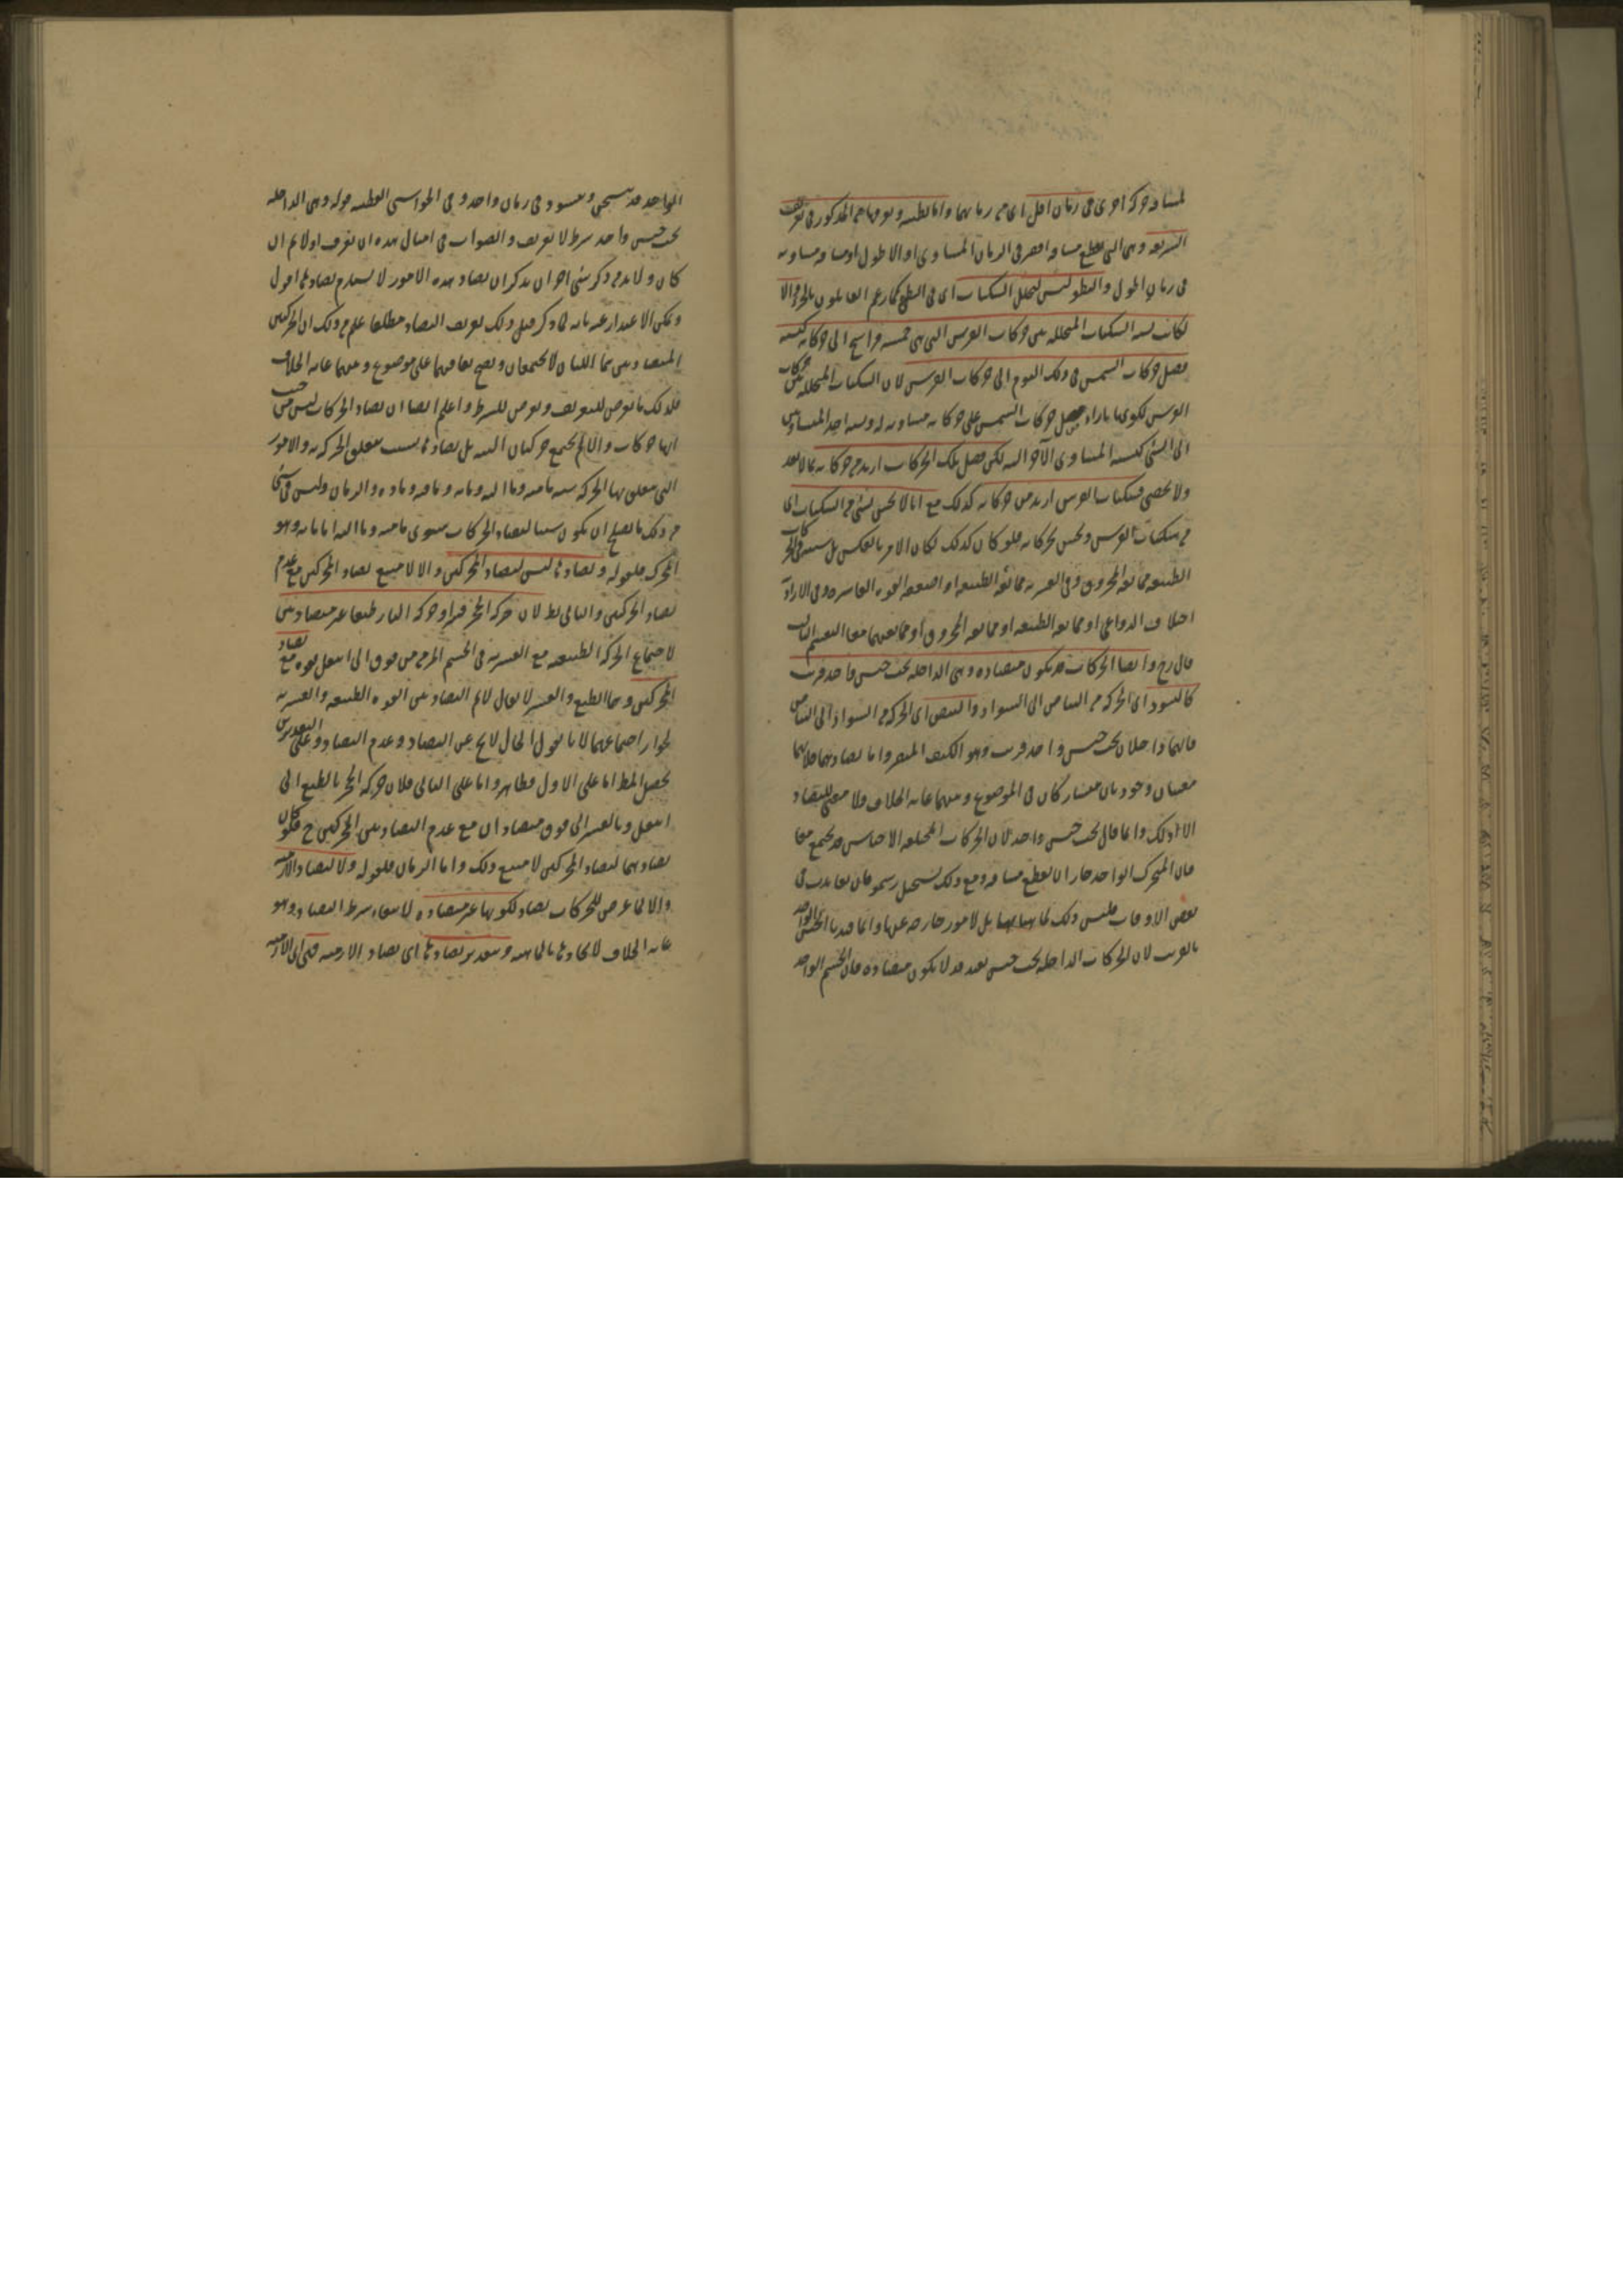 لمسافة حركة اخرى فى زمان اقل اى من زمانهما واما بطيئة وتعريفها من المذكور فى تعريف
السريعة وهى التى تقطع مسافة اقصر فى الزمان المساوى او الاطول او مسافة مساوية
فى زمان اطول والبطؤ ليس لتخلل السكنات اى فى البطئ كما زعم القائلون بالجزء والا
لكانت نسبة السكنات المتخللة بين حركات الفرس التى هى خمسة فراسخ الى حركاته كنسبة
فضل حركات الشمس فى ذلك اليوم الى حركات الفرس لان السكنات المتخللة بين حركات
الفرس لكونها بازاء فضل حركات الشمس على حركاته مساوية له ونسبة احد المتساويين
الى الشئ كنسبة المساوى الآخر اليه لكن فضل تلك الحركات ازيد من حركاته بما لا يعد
ولا يحصى فسكنات الفرس ازيد من حركاته كذلك مع انا لا نحس بشئ من السكنات اى
من سكنات الفرس ونحس بحركاته فلو كان كذلك لكان الامر بالعكس بل سببه فى الحركات
الطبيعية ممانعة المخروق وفى القسرية ممانعة الطبيعة او ضعف القوة القاسرة وفى الارادية
اختلاف الدواعى او ممانعة الطبيعة او ممانعة المخروق او ممانعتهما معا التقسيم الثالث
قال رح وايضا الحركات قد تكون متضادة وهى الداخلة تحت جنس واحد قريب
كالتسود اى الحركة من البياض الى السواد والتبيض اى الحركة من السواد الى البياض
فانهما داخلان تحت جنس واحد قريب وهو الكيف المبصر واما تضادهما فلانهما
معنيان وجوديان متشاركان فى الموضوع وبينهما غاية الخلاف ولا معنى للتضاد
الا ذلك وانما قال تحت جنس واحد لان الحركات المختلفة الاجناس قد تجتمع معا
فان المتحرك الواحد جاز ان يقطع مسافة ومع ذلك يستحيل وينمو فان تعاندت فى
بعض الاوقات فليس ذلك لماهياتها بل لامور خارجة عنها وانما قيدنا الجنس الواحد
بالقريب لان الحركات الداخلة تحت جنس بعيد قد لا تكون متضادة فان الجسم الواحد
الواحد قد يتسخن ويتسود فى زمان واحد وفى الحواشى القطبية قوله وهى الداخلة
تحت جنس واحد شرط لا تعريف والصواب فى امثال هذه ان يعرف اولا ثم ان
كان ولا بد من ذكر شئ آخر ان يذكر ان تضاد هذه الامور لا يستلزم تضادها اقول
ويمكن الاعتذار عنه بانه لما ذكر قبل ذلك تعريف التضاد مطلقا علم من ذلك ان الحركتين
المتضادتين هما اللتان لا تجتمعان ويصح تعاقبهما على موضوع وبينهما غاية الخلاف
فلذلك ما تعرض للتعريف وتعرض للشرط واعلم ايضا ان تضاد الحركات ليس من حيث
انها حركات والا لم تجتمع حركتان البتة بل تضادها بسبب متعلق الحركة والامور
التى يتعلق بها الحركة ستة ما منه وما اليه وما به وما فيه وما له والزمان وليس فى شئ
من ذلك ما يصلح ان يكون سببا لتضاد الحركات سوى ما منه وما اليه اما ما به وهو
المحرك فلقوله وتضادها ليس لتضاد المحركين والا لامتنع تضاد المحركين مع عدم
تضاد الحركتين والتالى بط لان حركة الحجر قسرا وحركة النار طبعا غير متضادتين
لاجتماع الحركة الطبيعية مع القسرية فى الجسم المرمى من فوق الى اسفل بقوة مع تضاد
المحركين وهما الطبع والقسر لا يقال لا نم التضاد بين القوة الطبيعية والقسرية
لجواز اجتماعهما لانا نقول الحال لا يخ عن التضاد وعدم التضاد وعلى التقديرين
يحصل المط اما على الاول فظاهر واما على الثانى فلان حركة الحجر بالطبع الى
اسفل وبالقسر الى فوق متضادان مع عدم التضاد بين المحركين ح فلو كان
تضادهما لتضاد المحركين لامتنع ذلك واما الزمان فلقوله ولا لتضاد الازمنة
والا لما عرض للحركات تضاد لكونها غير متضادة لانتفاء شرط التضاد وهو
غاية الخلاف لاتحادها بالماهية وبتقدير تضادها اى تضاد الازمنة فهى اى الازمنة